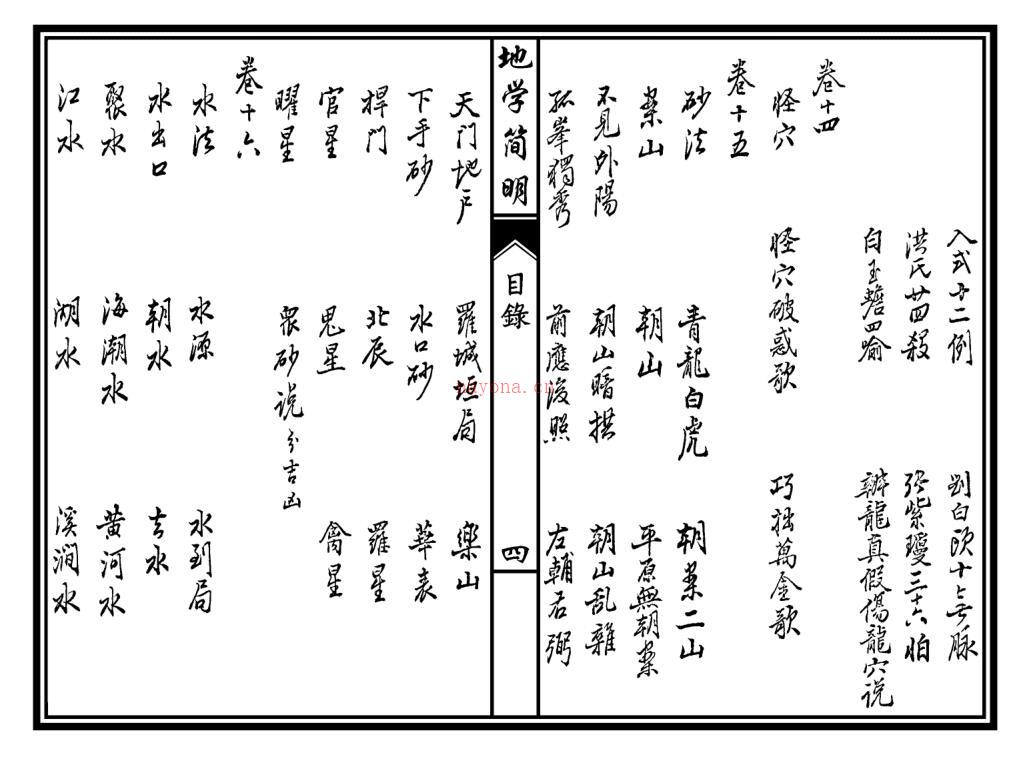 入式廿二例　刘白头十二无脉
洪氏廿四殺　張紫瓊三十六怕
白玉蟾四喻　辦龍真假傷龍穴说
卷十四
怪穴　怪穴破惑歌　巧拙萬金歌
卷十五
砂法　青龍白虎　朝案二山
案山　朝山　平原無朝案
不見外陽　朝山暗拱　朝山乱雜
孤峯獨秀　前應後照　左輔右弼
地学简明
目錄
四
天门地户　羅城垣局　樂山
下手砂　水口砂　華表
捍门　北辰　羅星
官星　鬼星　禽星
曜星　眾砂说分吉凶
卷十六
水法　水源　水到局
水出口　朝水　去水
聚水　海潮水　黄河水
江水　湖水　溪澗水
payona.cn